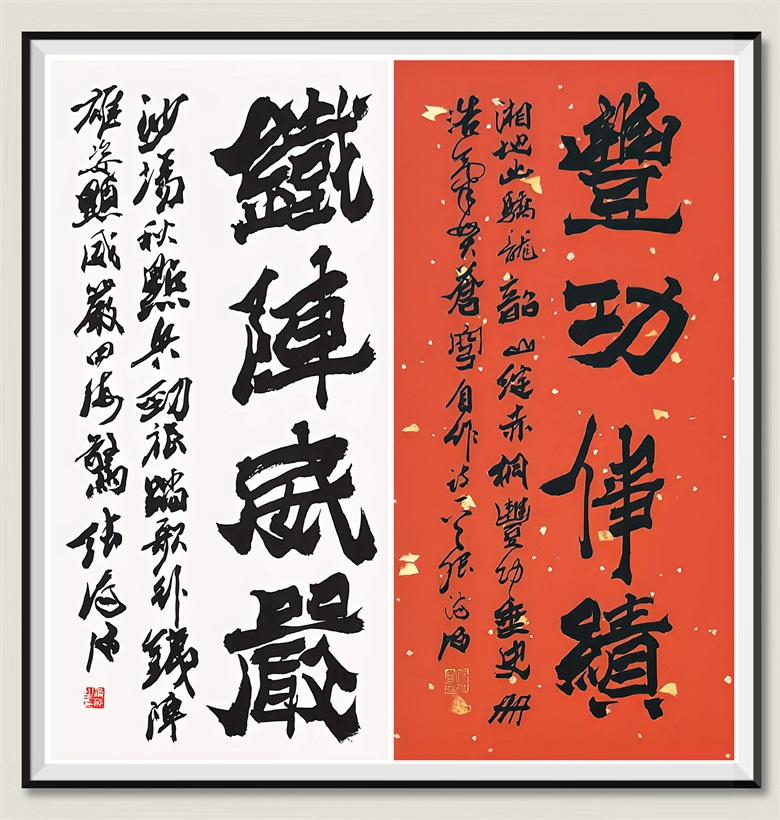 豐功偉績
湘地出驕龍韶山綻赤桐豐功垂史冊
浩氣貫蒼穹自作詩一首張海
鐵陣威嚴
沙場秋點兵勁旅踏歌行鐵陣
雄姿顯威嚴四海驚張海